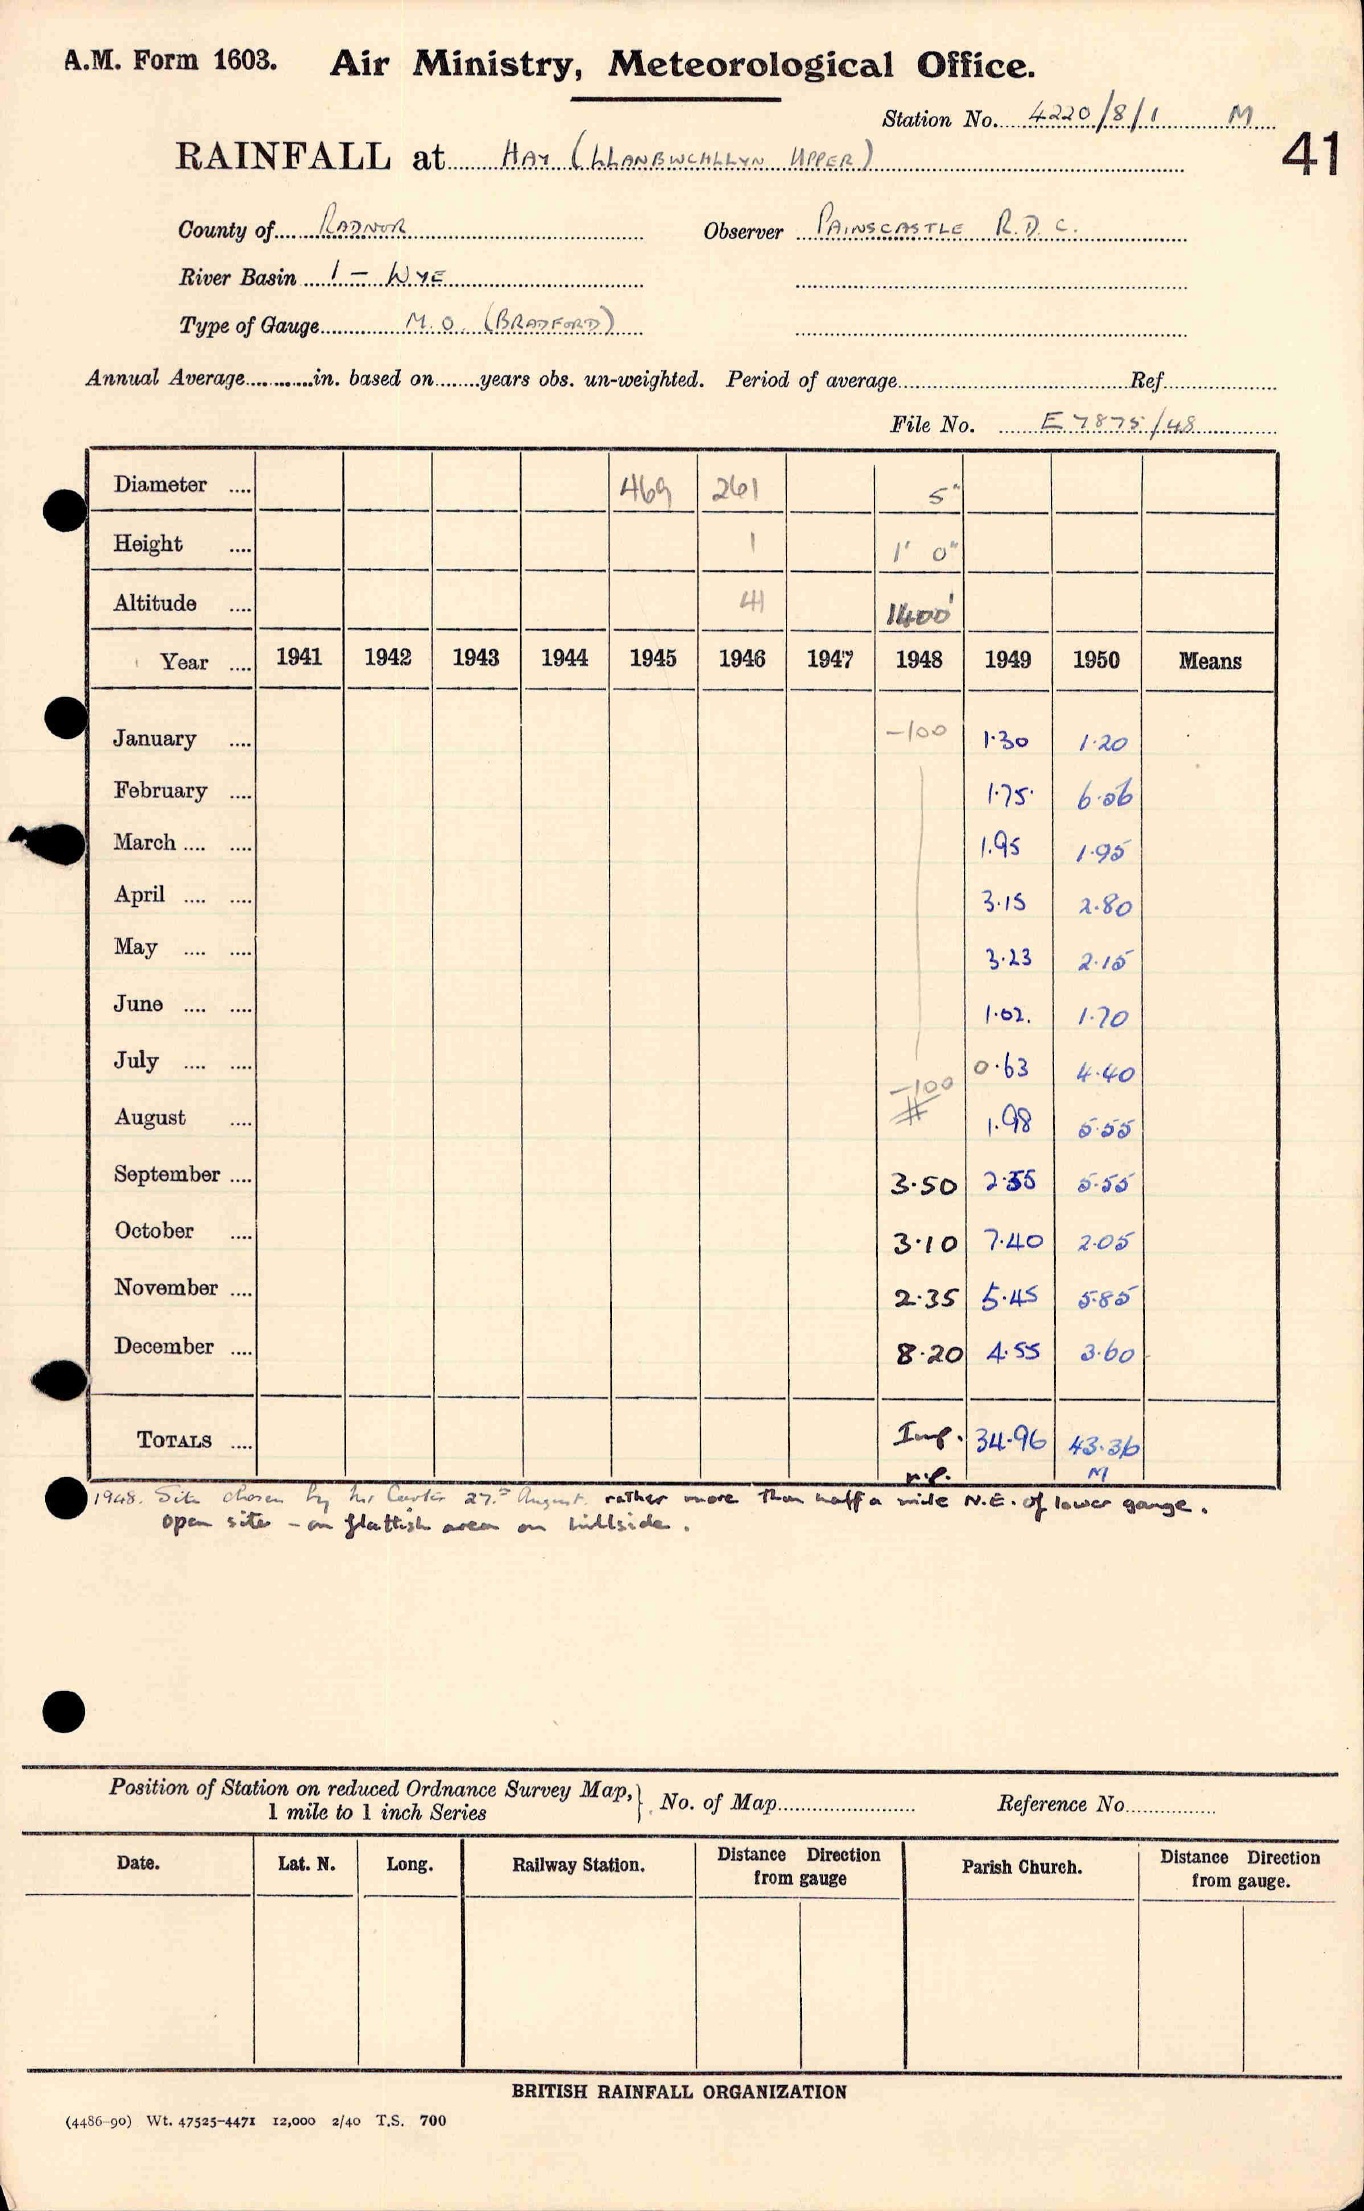 A.M. Form 1603. Air Ministry, Meteorological Office.
Station No. 4220/8/1 M
41
RAINFALL at HAY (LLANBWCHLLYN UPPER)
County of RADNOR Observer PAINSCASTLE R.D.C.
River Basin 1 - WYE
Type of Gauge M.O. (BRADFORD)
Annual Average............in. based on........years obs. un-weighted. Period of average.................... Ref....................
File No. E 7875/48
Diameter .... 469 261 5"
Height .... 1 1' 0"
Altitude .... 41 1400'
Year .... 1941 1942 1943 1944 1945 1946 1947 1948 1949 1950 Means
January .... -100 1.30 1.20
February .... 1.75 6.56
March .... .... 1.95 1.95
April .... .... 3.15 2.80
May .... .... 3.23 2.15
June .... .... 1.02. 1.70
July .... .... -100 0.63 4.40
August .... # 1.98 5.55
September .... 3.50 2.55 5.55
October .... 3.10 7.40 2.05
November .... 2.35 5.45 5.85
December .... 8.20 4.55 3.60
TOTALS .... Imp. 34.96 43.36
n.p. M
1948. Site chosen by Mr Carter 27th August. rather more than half a mile N.E. of lower gauge.
open site - on flattish area on hillside.
Position of Station on reduced Ordnance Survey Map, } No. of Map.................... Reference No...............
1 mile to 1 inch Series
Date. Lat. N. Long. Railway Station. Distance Direction Parish Church. Distance Direction
from gauge from gauge.
BRITISH RAINFALL ORGANIZATION
(4486-90) Wt. 47525-4471 12,000 2/40 T.S. 700